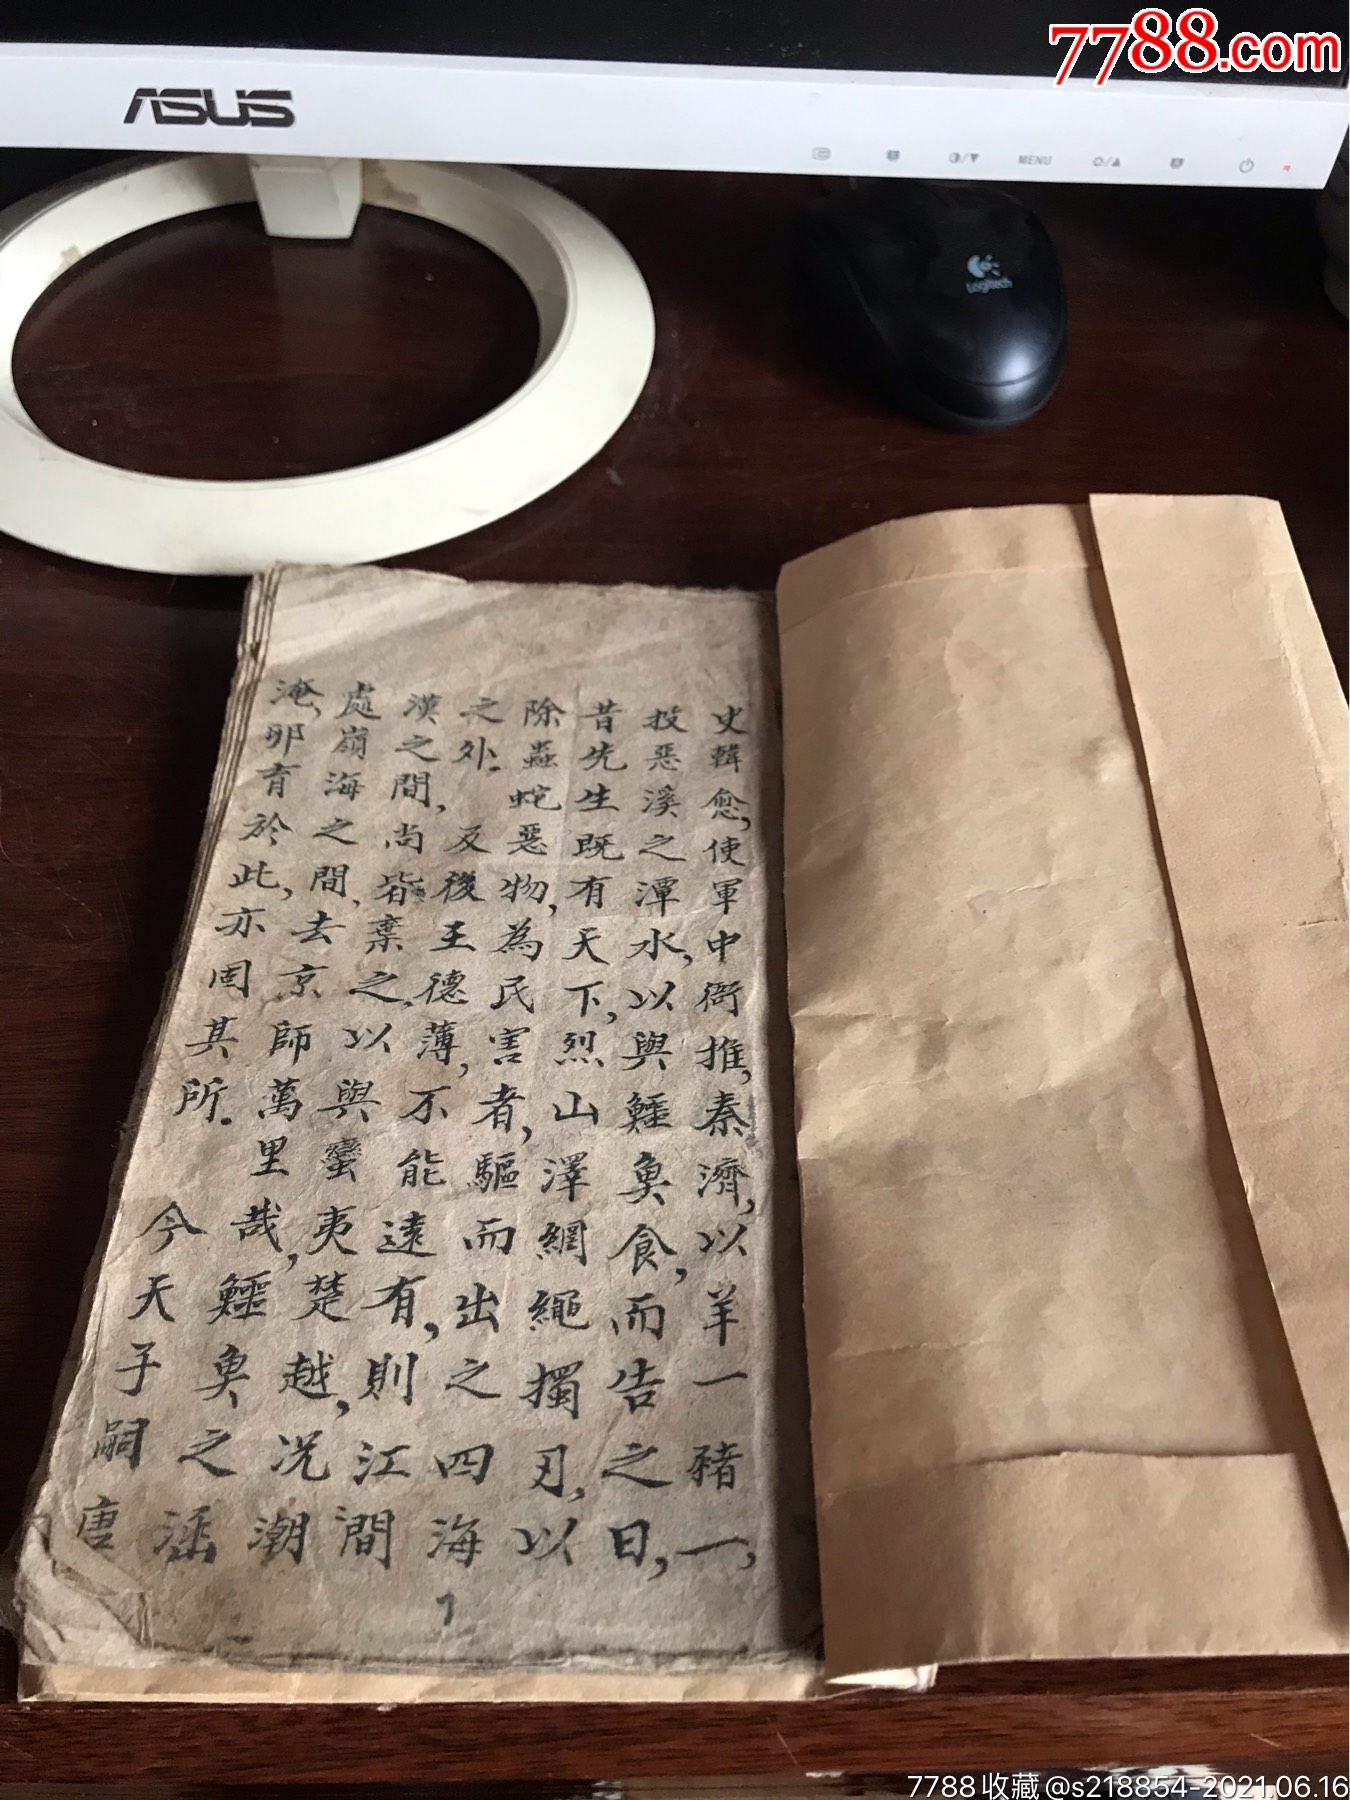 7788.com
ASUS
MENU
Logitech
史韓愈,使軍中衙推,秦濟,以羊一豬一,
投惡溪之潭水,以與鱷魚食,而告之曰,
昔先生既有天下,烈山澤網繩擉刃,以
除蟲蛇惡物,為民害者,驅而出之四海
之外。及後王德薄,不能遠有,則江澗
漢之間,尚皆棄之,以與蠻夷楚越,況潮
處嶺海之間,去京師萬里哉,鱷魚之涵
淹,卵育於此,亦固其所。今天子嗣唐
7788收藏@s218854-2021.06.16